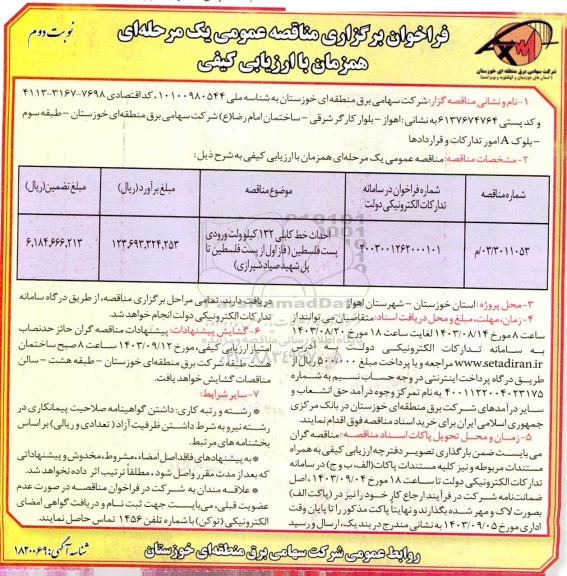 نوبت دوم
فراخوان برگزاری مناقصه عمومی یک مرحله‌ای
همزمان با ارزیابی کیفی
شرکت سهامی برق منطقه ای خوزستان
۱- نام و نشانی مناقصه گزار: شرکت سهامی برق منطقه‌ای خوزستان به شناسه ملی ۱۰۱۰۰۹۸۰۵۴۴، کد اقتصادی ۷۶۹۸-۳۱۶۷-۴۱۱۳
و کد پستی ۶۱۳۷۶۷۴۷۶۴ به نشانی: اهواز – بلوار کارگر شرقی – ساختمان امام رضا(ع) شرکت سهامی برق منطقه‌ای خوزستان – طبقه سوم
– بلوک A امور تدارکات و قراردادها
۲- مشخصات مناقصه: مناقصه عمومی یک مرحله‌ای همزمان با ارزیابی کیفی به شرح ذیل:
شماره مناقصه
شماره فراخوان در سامانه تدارکات الکترونیکی دولت
موضوع مناقصه
مبلغ برآورد (ریال)
مبلغ تضمین (ریال)
۰۳/۳۰۱۱۰۵۳/م
۲۰۰۳۰۰۱۲۶۲۰۰۰۱۰۱
احداث خط کابلی ۱۳۲ کیلوولت ورودی
پست فلسطین (فاز اول از پست فلسطین تا
پل شهید صیاد شیرازی)
۱۲۳,۶۹۳,۳۲۴,۲۵۳
۶,۱۸۴,۶۶۶,۲۱۳
۳- محل پروژه: استان خوزستان – شهرستان اهواز
۴- زمان، مهلت، مبلغ و محل دریافت اسناد: متقاضیان می توانند از
ساعت ۸ مورخ ۱۴۰۳/۰۸/۱۴ لغایت ساعت ۱۸ مورخ ۱۴۰۳/۰۸/۲۰
به سامانه تدارکات الکترونیکی دولت به آدرس
www.setadiran.ir مراجعه و با پرداخت مبلغ ۵۰۰،۰۰۰ ریال از
طریق درگاه پرداخت اینترنتی در وجه حساب نسیم به شماره
۴۰۰۱۱۲۲۰۰۴۰۲۳۱۷۵ به نام تمرکز وجوه درآمد حق انشعاب و
سایر درآمدهای شرکت برق منطقه‌ای خوزستان در بانک مرکزی
جمهوری اسلامی ایران برای خرید اسناد مناقصه فوق اقدام نمایند.
۵- زمان و محل تحویل پاکات اسناد مناقصه: مناقصه گران
می‌بایست ضمن بارگذاری تصویر دفترچه ارزیابی کیفی به همراه
مستندات مربوطه و نیز کلیه مستندات پاکات (الف، ب و ج) در سامانه
تدارکات الکترونیکی دولت تا ساعت ۱۸ مورخ ۱۴۰۳/۰۹/۰۴، اصل
ضمانت‌نامه شرکت در فرآیند ارجاع کار خود را نیز در (پاکت الف)
بصورت لاک و مهر شده بگذارند و نهایتا پاکت مذکور را تا پایان وقت
اداری مورخ ۱۴۰۳/۰۹/۰۵ به نشانی مندرج در بند یک، ارسال و رسید
دریافت دارند. تمامی مراحل برگزاری مناقصه، از طریق درگاه سامانه
تدارکات الکترونیکی دولت انجام خواهد شد.
۶- گشایش پیشنهادات: پیشنهادات مناقصه گران حائز حدنصاب
امتیاز ارزیابی کیفی، مورخ ۱۴۰۳/۰۹/۱۲ ساعت ۸ صبح ساختمان
هشت طبقه شرکت برق منطقه‌ای خوزستان – طبقه هشت – سالن
مناقصات گشایش خواهد یافت.
۷- سایر شرایط:
* رشته و رتبه کاری: داشتن گواهینامه صلاحیت پیمانکاری در
رشته نیرو به شرط داشتن ظرفیت آزاد (تعدادی و ریالی) بر اساس
بخشنامه های مرتبط.
* به پیشنهادهای فاقد امضاء، مشروط، مخدوش و پیشنهاداتی
که بعد از مدت مقرر واصل شود، مطلقاً ترتیب اثر داده نخواهد شد.
* علاقه مندان به شرکت در فراخوان مناقصه در صورت عدم
عضویت قبلی، می‌بایست جهت ثبت نام و دریافت گواهی امضای
الکترونیکی (توکن) با شماره تلفن ۱۴۵۶ تماس حاصل نمایند.
روابط عمومی شرکت سهامی برق منطقه‌ای خوزستان
شناسه آگهی: ۱۸۲۰۰۶۹